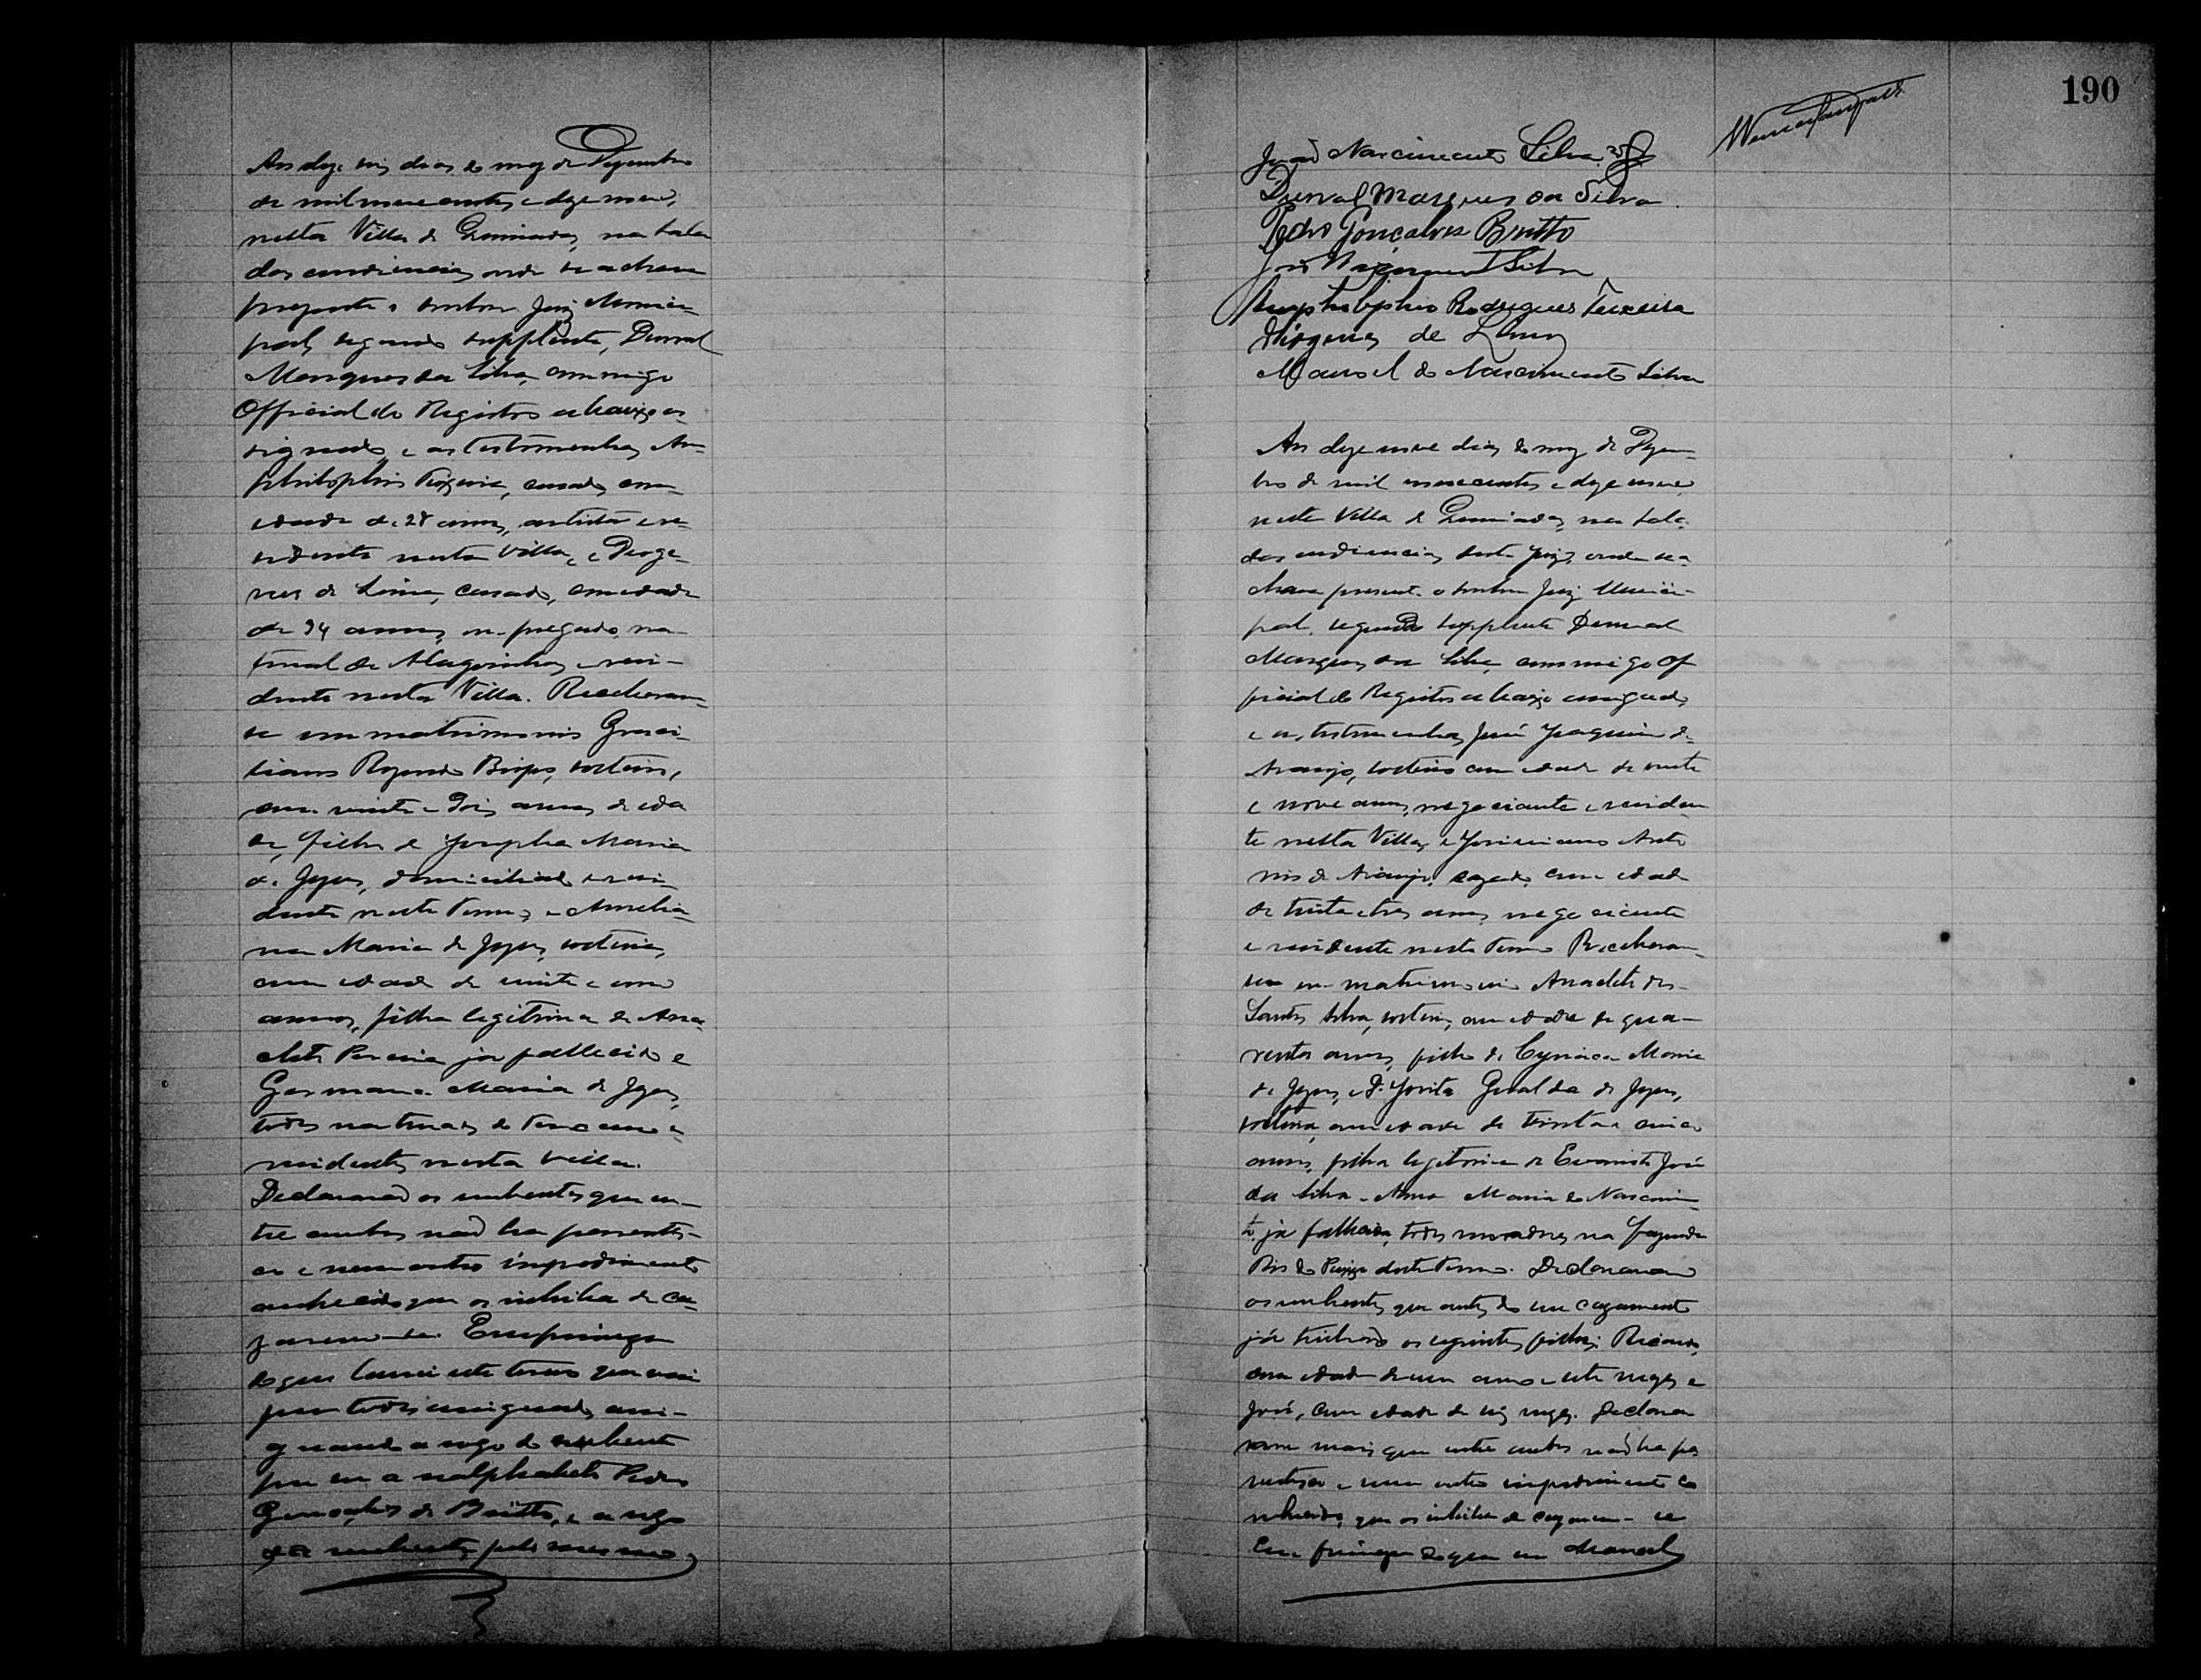 Aos deze seis dias do mez de Dezembro
de mil nove centos e deze nove,
nesta Villa de Queimadas, na sala
das audiencias onde se achava
prezente o senhor Juiz Munici-
pal, segundo supplente, Durval
Marques da Silva, commigo
Official do Registro abaixo as-
signado, e as testemunhas, An-
philophio Teixeira, casado, com
edade de 28 annos, artista e re-
sidente nesta Villa, e Dioge-
nes de Lima, casado, com edade
de 34 annos, empregado no
ramal de Alagoinhas e resi-
dente nesta Villa. Receberam-
se em matrimonio Graci-
liano Bispo, solteiro,
com vinte e dois annos de eda
de, filho de Josepha Maria
de Jezus, domiciliado e resi-
dente neste termo, e Amelia
na Maria de Jezus, solteira,
com edade de vinte e um
annos, filha legitima de Ana
cleto Pereira já fallecido e
Germana Maria de Jezus,
todos naturaes do termo e
residentes nesta Villa.
Declararaõ os nubentes que en-
tre ambos naõ ha parentes-
co e nem outro impedimento
conhecido que os inhiba de ca-
zarem-se. Em firmeza
do que lavrei este termo que vai
por todos assignado, assi-
gnando a rogo do nubente
por ser analphabeto Pedro
Gonçalves de Britto, e a rogo
da nubente, pelo mesmo
190
Joaõ Nascimento Silva
Durval Marques da Silva
Pedro Gonçalves Britto
José Nascimento Silva
Amphilophio Rodrigues Teixeira
Diogenes de Lima
Manoel do Nascimento Silva
Aos deze nove dias do mez de Dezem-
bro de mil novecentos e deze nove,
nesta Villa de Queimadas, na sala
das audiencias deste Juizo, onde se a-
chava presente o senhor Juiz Munici-
pal, segundo supplente Durval
Marques da Silva, commigo Of
ficial do Registro abaixo assignado
e as testemunhas José Joaquim de
Araujo, solteiro com edade de vinte
e nove annos, negociante e residen
te nesta Villa, e Antо
nio de Araujo, cazado, com edade
de trinta e tres annos, negociante
e residente neste termo. Receberam-
se em matrimonio Anacleto dos
Santos Silva, solteiro, com edade de qua-
renta annos, filho de Cyriaca Maria
de Jezus, e D. Geralda de Jezus,
solteira, com edade de trinta e cinco
annos, filha legitima de Evaristo José
da Silva e Anna Maria do Nascimen-
to, já fallecida, todos moradores na fazenda
Rio do Peixe deste termo. Declararam
os nubentes que antes do seu cazamento
já tinhaõ os seguintes filhos: Ricardo,
com edade de um anno e sete mezes e
José, com edade de seis mezes. Declara
ram mais que entre ambos naõ ha pa
rentesco e nem outro impedimento co
nhecido, que os inhiba de cazarem-se
Em firmeza do que eu Manoel